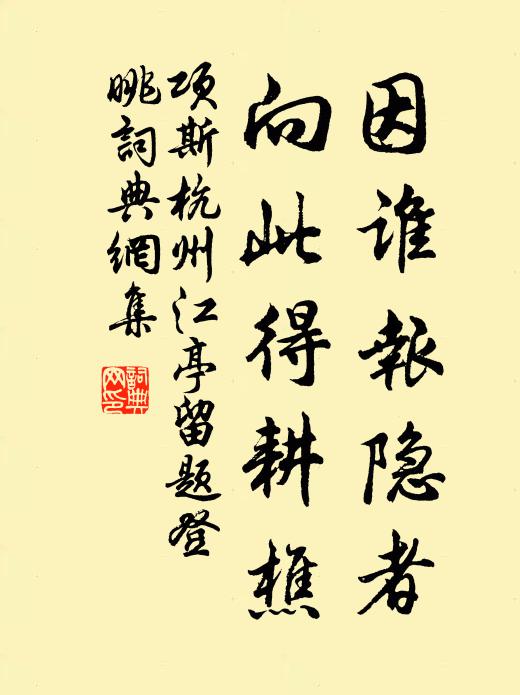 因谁報隐者
向此得耕樵
项斯杭州江亭留题登
眺詞典網集
詞典
网印